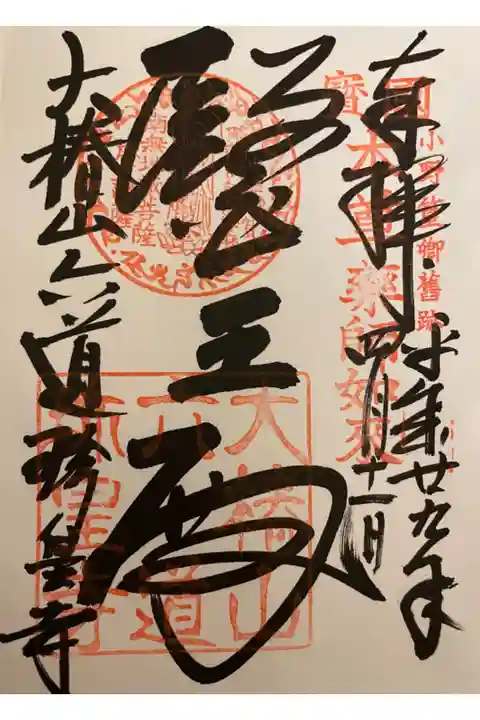 奉拝 平成廿九年
四月十一日
小野篁卿舊跡
國寶
本尊薬師如来
醫王殿
大椿山六道珍皇寺
南無地蔵菩薩
大椿山
六道
珍皇寺